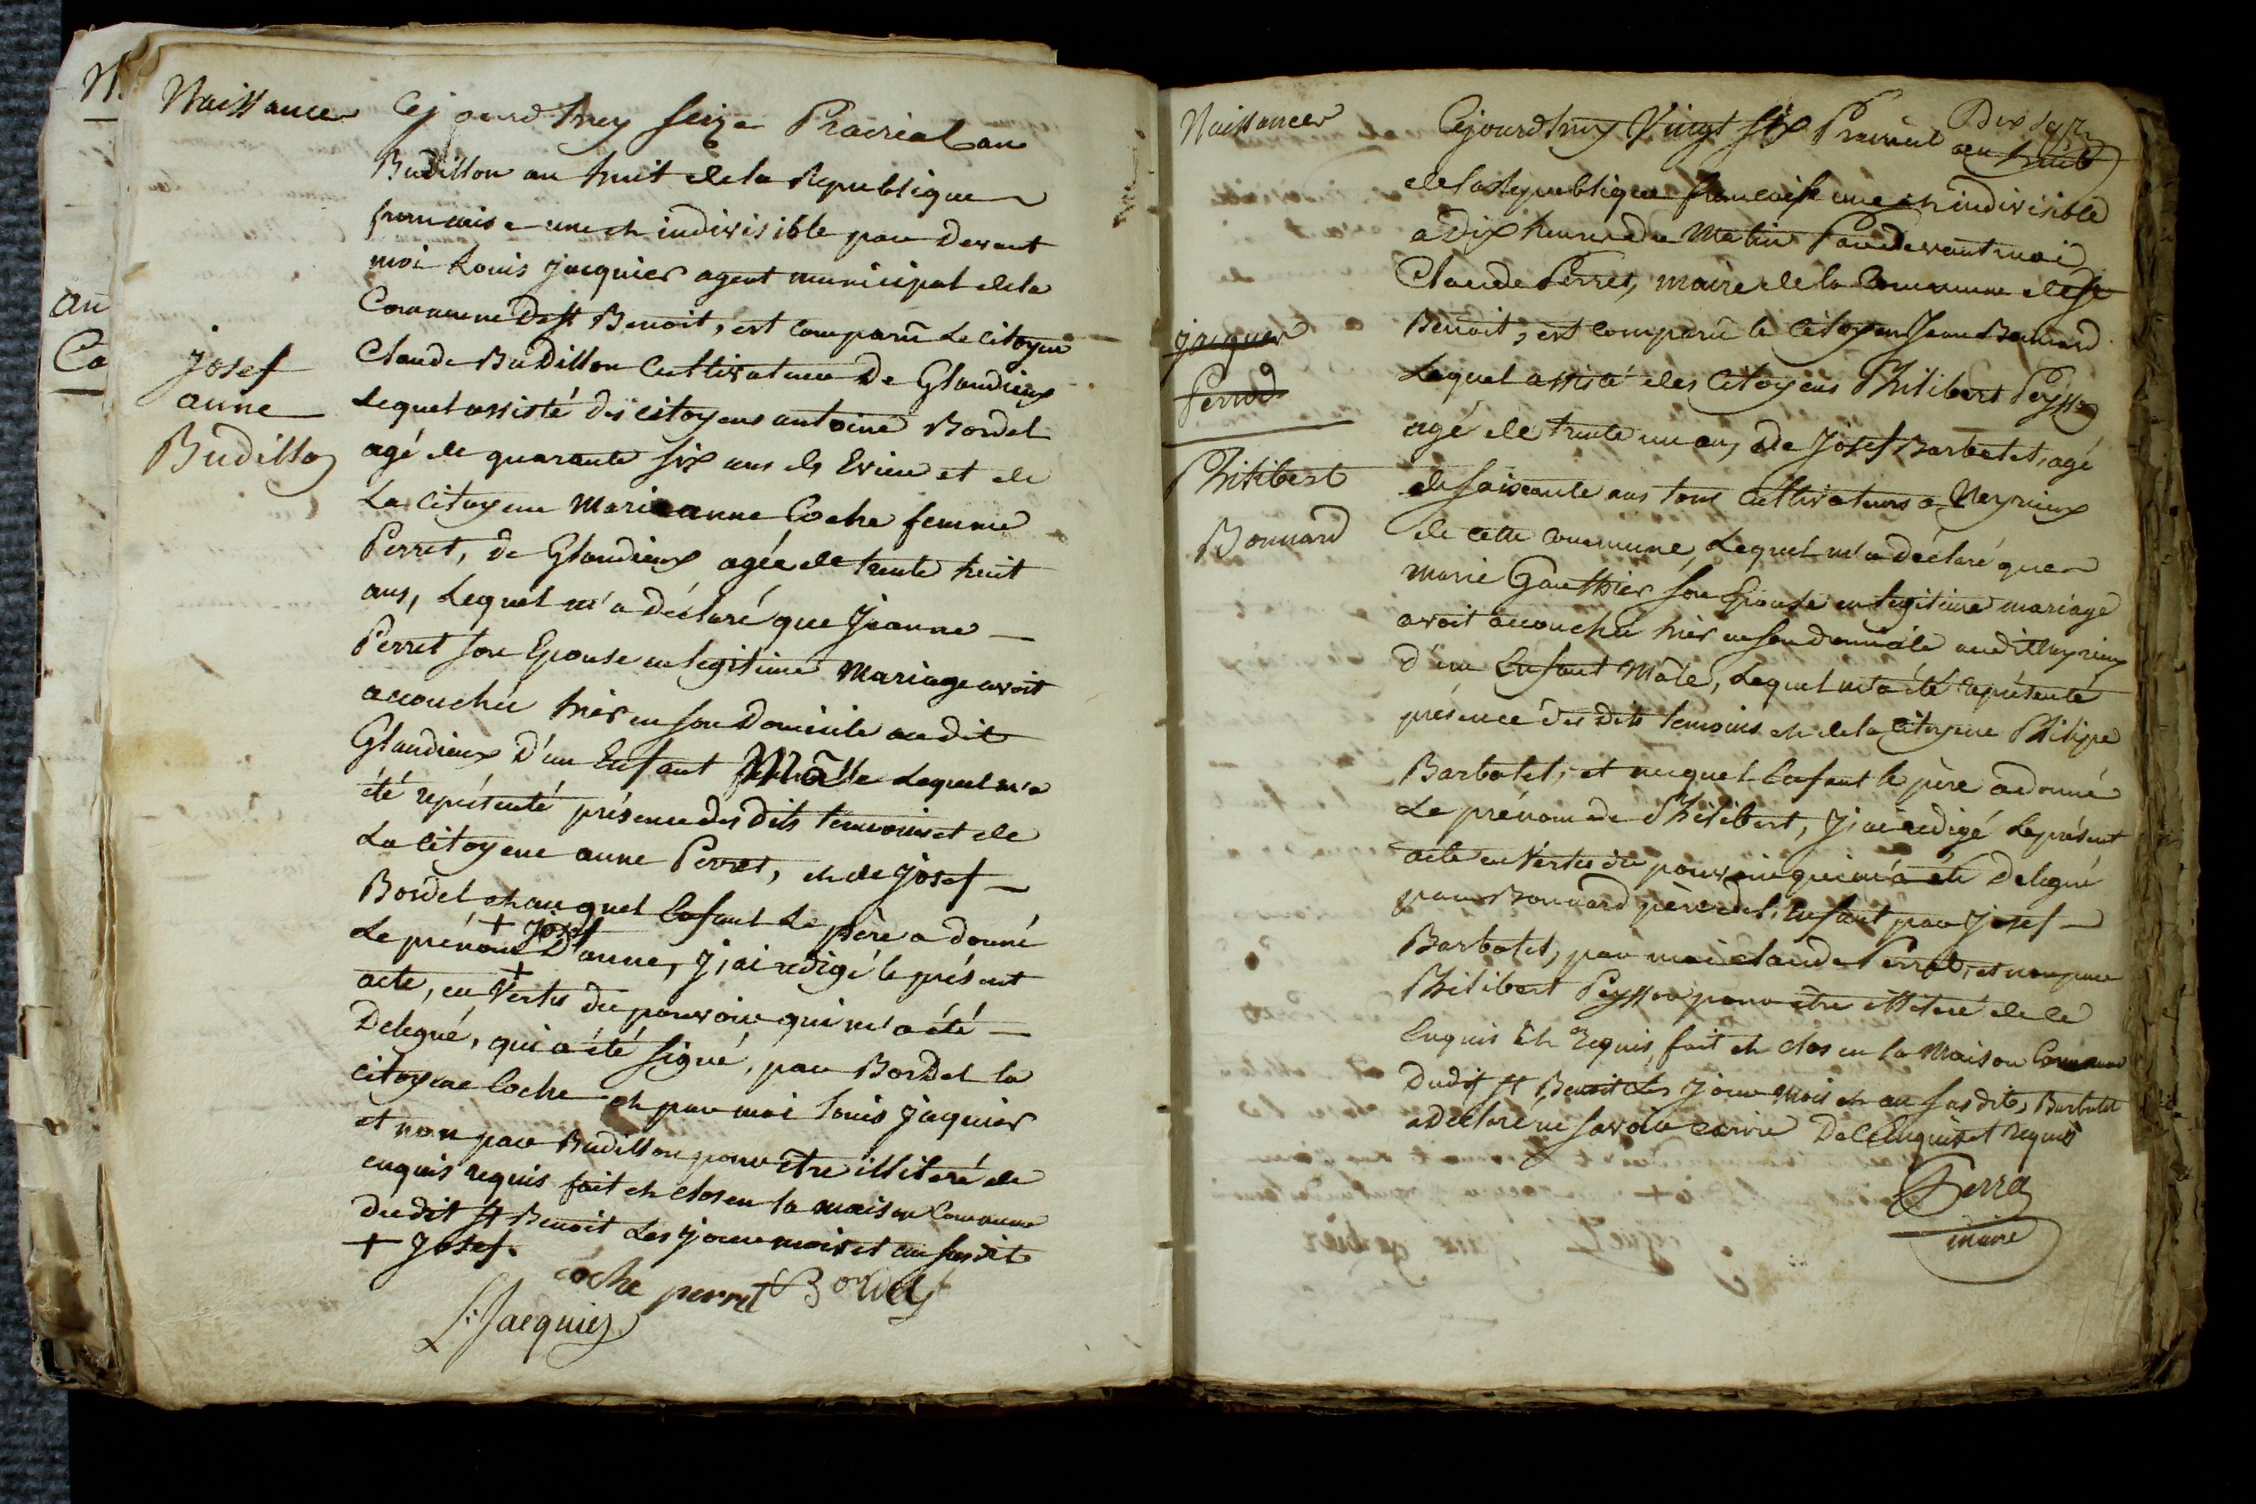 Naissance
Cejourd'huy seize Prairial an
Budillon an huit de la Republique
francaise une et indivisible par devant
moi Louis jacquier agent municipal de la
Commune de St Benoit, est comparu Le Citoyen
josef
anne
Budillon
Claude Budillon Cultivateur De Glandieux
Lequel assisté des citoyens antoine Bordel
agé de quarante six ans de Evieu et de
La citoyene Marieanne Coche femme
Perret, de Glandieux agée de trente huit
ans, Lequel m'a déclaré que Jeanne
Perret son Epouse en legitime Mariage avoit
accouchée hier en son Domicile au dit
Glandieux d'un Enfant Mâlle Lequel m'a
été représenté présence des dits temoins et de
La citoyene anne Perret, et de josef
Bordel et auquel Enfant Le père a donné
+ josef
Le prénom D'anne, j'ai redigé le présent
acte, en Vertu du pouvoir qui m'a été
Delegué, qui a été signé, par Bordel la
citoyene Coche et par moi Louis jaquier
et non par Budillon pour être illiteré de
enquis requis fait et clos en la maison Commune
du dit St Benoit Les jour mois et an susdit
+ josef.
coche perret Bordel
L. Jacquier
Naissances
Cejourd'huy Vingt six Prairial Dix sept
an huit
de la Republique francaise une et indivisible
a Dix heures du Matin Par devant moi
Claude Perret, maire de la Commune de St
jacques
Perrod
Benoit, est comparu le Citoyen Jean Bonnard
Lequel assisté des Citoyens Philibert Peysson
agé de trente un ans, de Josef Barbotet, agé
Philibert
Bonnard
de soixante ans tous cultivateurs a Neyrieux
de cette commune, Lequel m'a déclaré que
Marie Gauthier son Epouse en legitime mariage
avoit accouchée hier en son domicile au dit Neyrieux
D'un Enfant Mâle, Lequel m'a été représenté
présence des dits temoins et de la Citoyene Philipe
Barbotet, et auquel Enfant le père a donné
Le prénom de Philibert, J'ai redigé Le présent
acte en Vertu du pouvoir qui m'a été Delegué
par Bonnard père de l'Enfant par Josef
Barbotet, par moi Claude Perret, et non par
Philibert Peysson pour être illiteré de ce
Enquis Et Requis, fait et clos en la Maison Commune
Dudit St Benoit Les jour mois et an susdits, Barbotet
a Declaré ne savoir ecrire De ce Enquis et Requis
Perret
maire